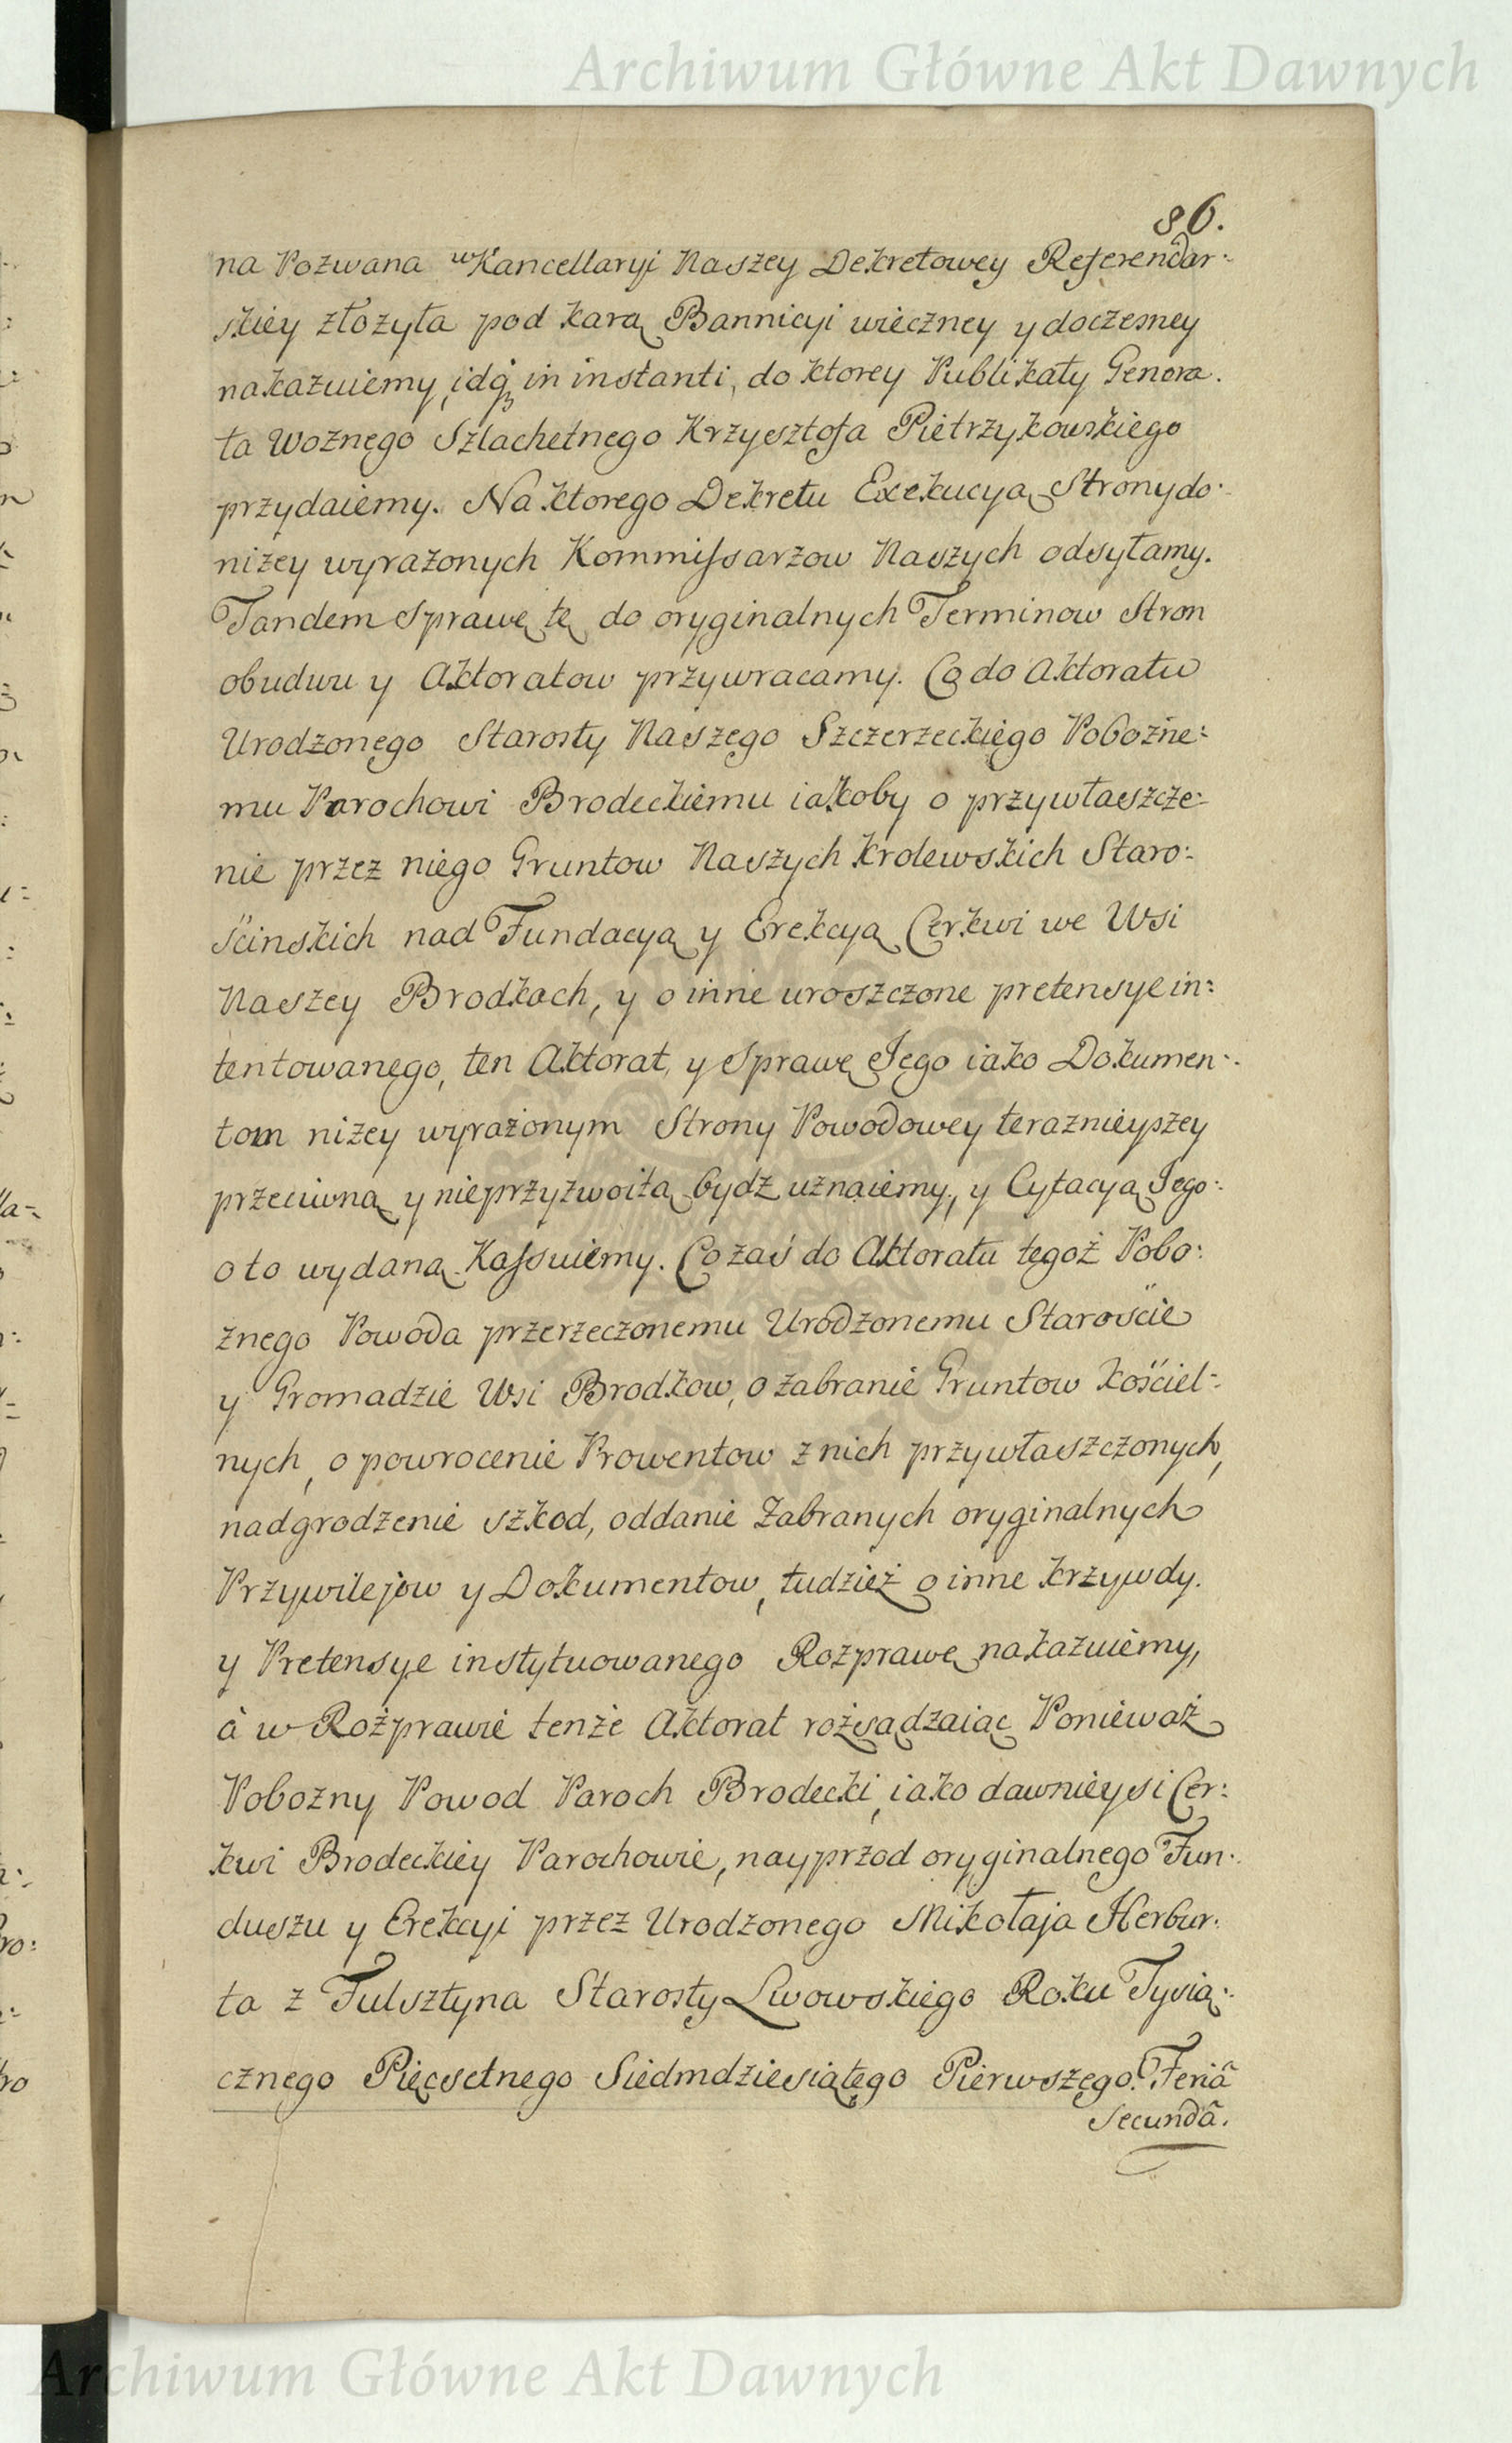 Archiwum Główne Akt Dawnych
86.
na Pozwana w Kancellaryi Naszey Dekretowey Referendar:
skiey złożyła pod karą Bannicyi wieczney y doczesney
nakazuiemy, idq₃ in instanti, do ktorey Publikaty Genera.
ła Woznego Szlachetnego Krzysztofa Pietrzykowskiego
przydaiemy. Na ktorego Dekretu Exekucyą Strony do:
niżey wyrażonych Kommissarzow Naszych odsyłamy.
Tandem Sprawę tę do oryginalnych Terminow Stron
obudwu y Aktoratow przywracamy. Co do Aktoratu
Urodzonego Starosty Naszego Szczerzeckiego Pobożne:
mu Parochowi Brodeckiemu iakoby o przywłaszcze:
nie przez niego Gruntow Naszych Krolewskich Staro:
ścinskich nad Fundacyą y Erekcyą Cerkwi we Wsi
Naszey Brodkach, y o inne uroszczone pretensye in:
tentowanego, ten Aktorat, y Sprawę Jego iako Dokumen:
tom niżey wyrażonym Strony Powodowey teraznieyszey
przeciwną y nieprzyzwoitą bydz uznaiemy, y Cytacyą Jego:
o to wydaną Kassuiemy. Co zaś do Aktoratu tegoż Pobo:
żnego Powoda przerzeczonemu Urodzonemu Starościе
y Gromadzie Wsi Brodkow, o zabranie Gruntow Kościel:
nych, o powrocenie Prowentow z nich przywłaszczonych,
nadgrodzenie szkod, oddanie Zabranych oryginalnych
Przywilejow y Dokumentow, tudzież o inne krzywdy.
y Pretensye instytuowanego Rozprawę nakazuiemy,
à w Rozprawie tenże Aktorat rozsądzaiąc Ponieważ
Pobożny Powod Paroch Brodecki, iako dawnieysi Cer:
kwi Brodeckiey Parochowie, nayprzod oryginalnego Fun:
duszu y Erekcyi przez Urodzonego Mikołaja Herbur:
ta z Fulsztyna Starosty Lwowskiego Roku Tysią:
cznego Pięćsetnego Siedmdziesiątego Pierwszego. Feriâ
Secundâ.
Archiwum Główne Akt Dawnych